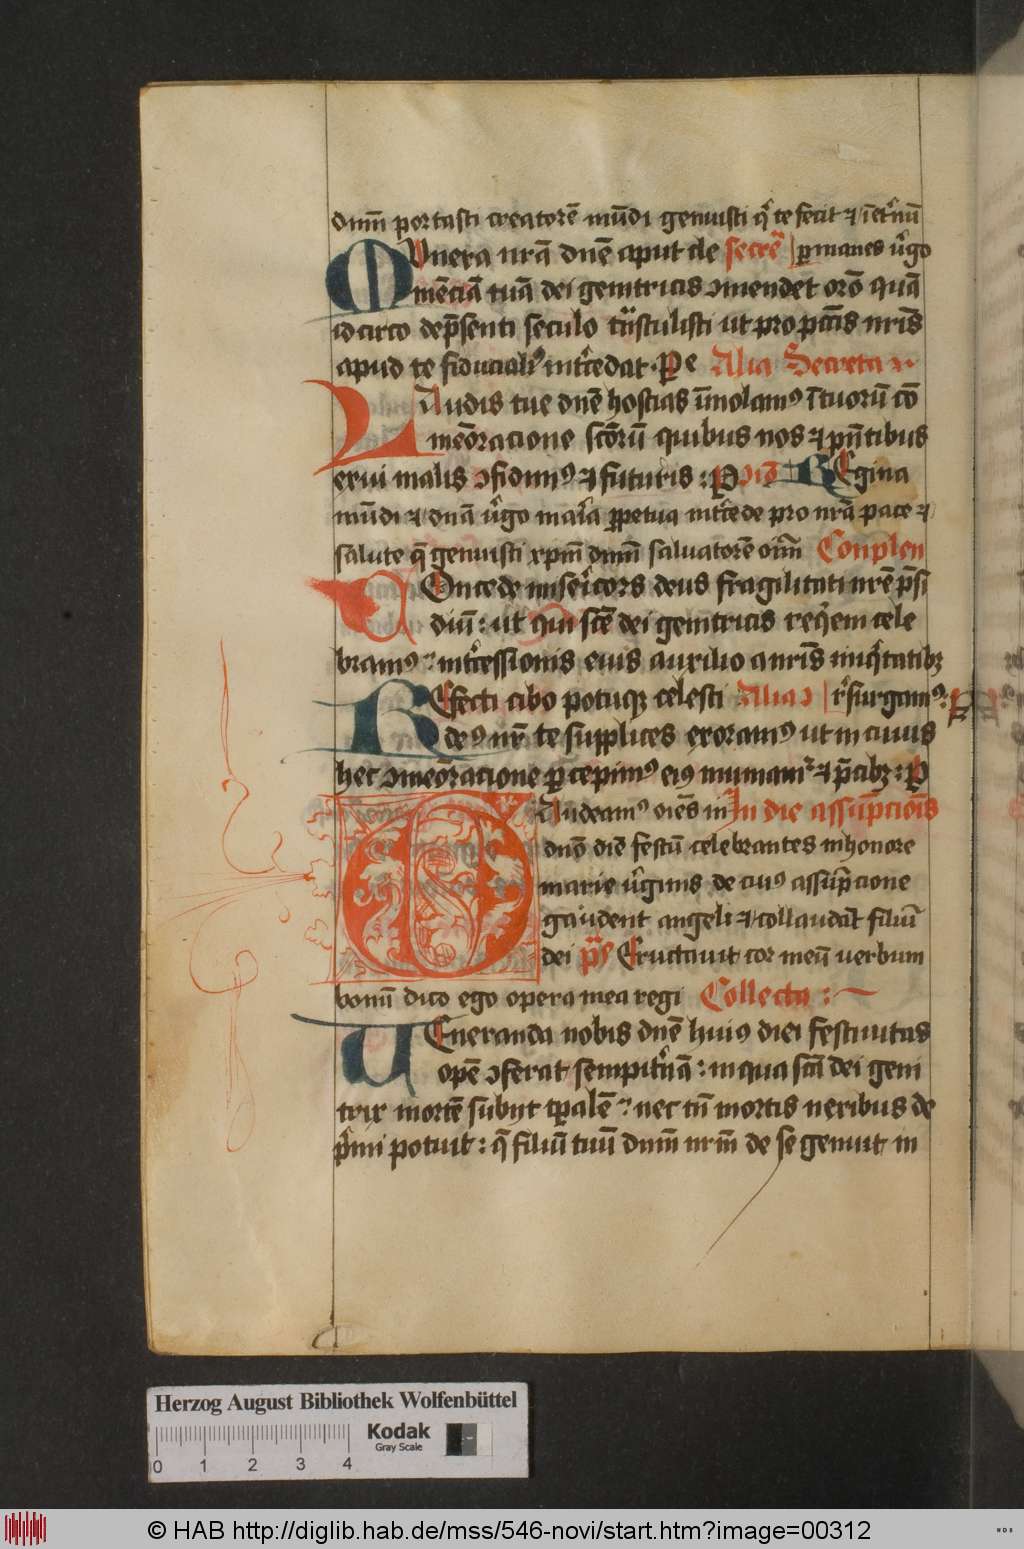 dnm̄ portasti creatorē mūdi genuisti q̄ te fecit ⁊ ī etͥnū
MVnera nr̄a dnē aput cle secre᷒ permanes vͥgo
mēciā tuā dei genitricis ↄmendet orō quā
idcirco de p̄senti seculo trͣstulisti ut pro pctīs nr̄is
apud te fiducialiꝰ intͥcedat · Per Alia Secreta
LAudis tue dnē hostias īmolamꝰ ī tuorū cō
meōracione sctōrū quibus nos ⁊ pn̄tibus
exui malis ↄfidimꝰ ⁊ futuris : P REgina
mūdi ⁊ dnā vͥgo maͥa ꝑpetua intͥcede pro nr̄a pace ⁊
salute q̄ genuisti xpm̄ dnm̄ saluatorē oīm̄ Conplen
COncede miserͥcors deus fragilitati nr̄e p̄si
diū : ut qui sctē dei genitricis reqͥem cele
bramꝰ : intͥcessionis eius auxilio a nr̄is iniqͥtatibꝫ
REfecti cibo potuqꝫ celesti Alia rͤsurgamꝰ : P
deꝰ nr̄ te supplices exoramꝰ ut in cuius
hec ↄmeōracione percepimꝰ eiꝰ muniamͬ ⁊ p̄cibꝫ : P
GAudeamꝰ oīes in In die assūpcioīs
dnō diē festū celebrantes in honore
marie vͥginis de cuiꝰ assūpcione
gaudent angeli ⁊ collaudāt filiū
dei p͞s Eructauit cor meū uerbum
bonū dico ego opera mea regi Collecta :
VEneranda nobis dnē huiꝰ diei festiuitas
opē ↄferat sempitͥnā : in qua sctā dei geni
trix mortē subijt tp̄alē : nec tn̄ mortis nexibus de
pͥmi potuit : q̄ filiū tuū dnm̄ nr̄m̄ de se genuit in
Herzog August Bibliothek Wolfenbüttel
Kodak
Gray Scale
0 1 2 3 4
© HAB http://diglib.hab.de/mss/546-novi/start.htm?image=00312